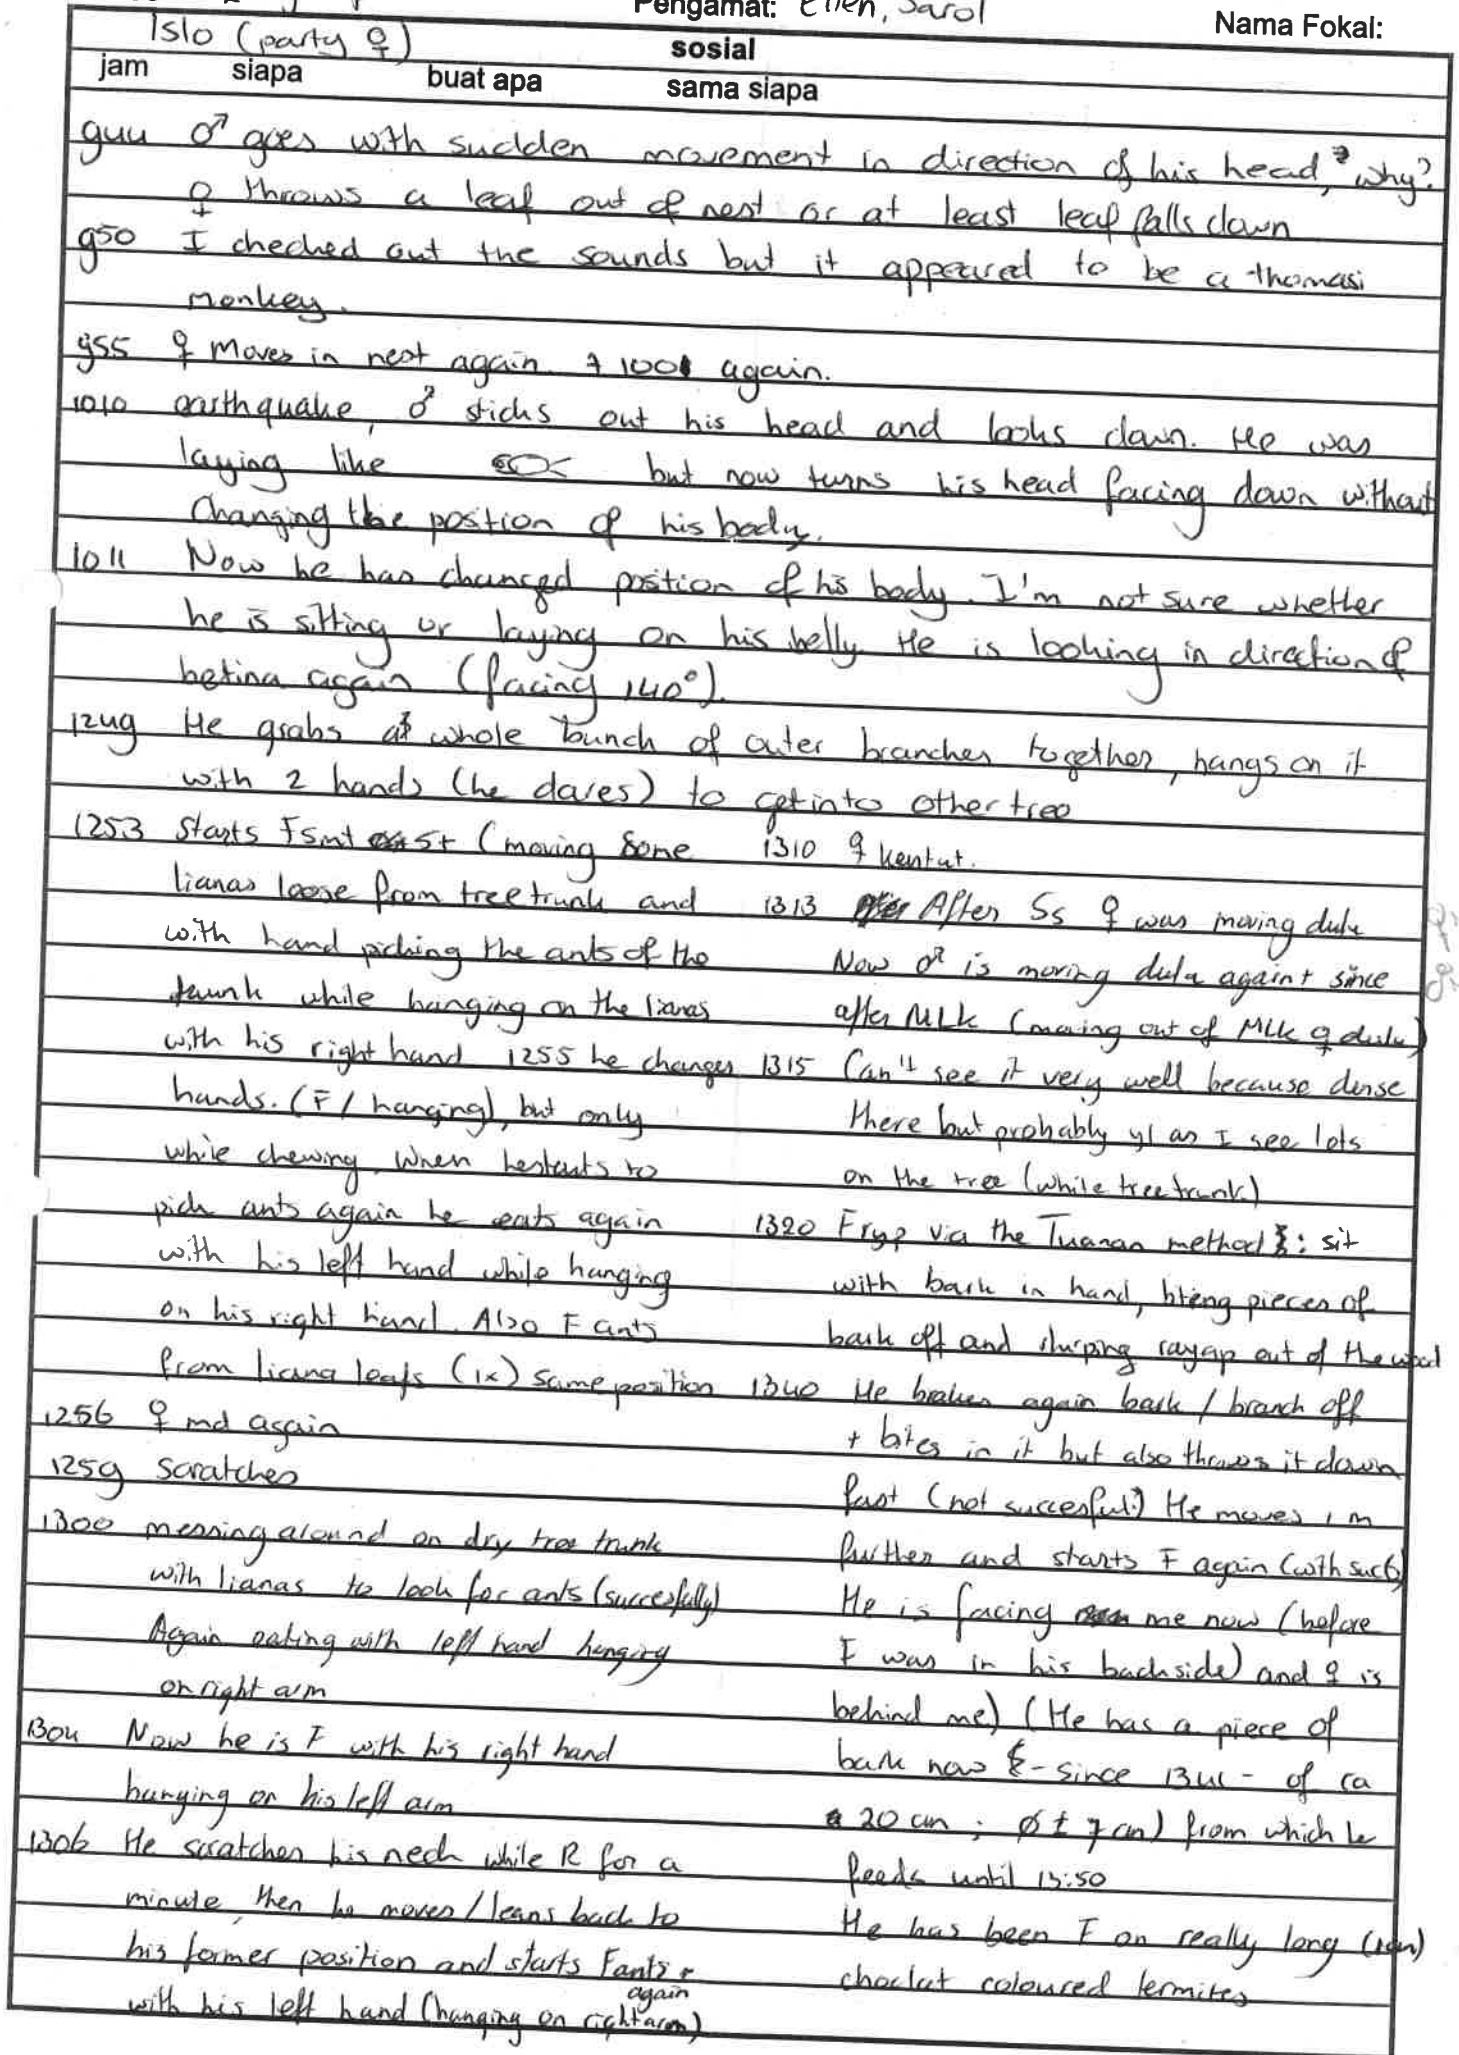 Pengamat: Ellen, Sarol
Nama Fokal:
Islo (party ♀)
sosial
jam siapa buat apa sama siapa
944 ♂ goes with sudden movement in direction of his head, why?
♀ throws a leaf out of nest or at least leaf falls down
950 I checked out the sounds but it appeared to be a thomasi
monkey.
955 ♀ moves in nest again. + 1001 again.
1010 earthquake, ♂ sticks out his head and looks down. He was
laying like but now turns his head facing down without
Changing the postion of his body.
1011 Now he has changed position of his body. I'm not sure whether
he is sitting or laying on his belly He is looking in direction of
betina again (facing 140°).
1249 He grabs a whole bunch of outer branches together, hangs on it
with 2 hands (he dares) to get into other tree
1253 Starts Fsmt St (moving some
lianas loose from tree trunk and
with hand picking the ants of the
trunk while hanging on the lianas
with his right hand 1255 he changes
hands. (F/hanging), but only
while chewing. When he starts to
pick ants again he eats again
with his left hand while hanging
on his right hand. Also F ants
from liana leafs (1x) same position
1256 ♀ md again
1259 Scratches
1300 messing around on dry tree trunk
with lianas to look for ants (succesfully)
Again eating with left hand hanging
on right arm
1304 Now he is F with his right hand
hanging on his left arm
1306 He scratches his neck while R for a
minute, then he moves/leans back to
his former position and starts F ants
again
with his left hand (hanging on right arm)
1310 ♀ kentut.
1313 After Ss ♀ was moving dulu
Now ♂ is moving dulu again + since
after MLk (moving out of MLk ♀ dulu)
1315 Can't see it very well because dense
there but probably yl as I see lots
on the tree (white tree trunk)
1320 Fryp via the Tuanan method: sit
with bark in hand, biteng pieces of
bark off and slurping rayap out of the wood
1340 He brakes again bark / branch off
+ bites in it but also throws it down
fast (not succesful?) He moves 1 m
further and starts F again (with suc6)
He is facing me now (before
I was in his backside) and ♀ is
behind me) (He has a piece of
bark now - since 1341 - of ca
20 cm ; ø ± 7 cm) from which he
feeds until 13:50
He has been F on really long (1cm)
choclat coloured termites